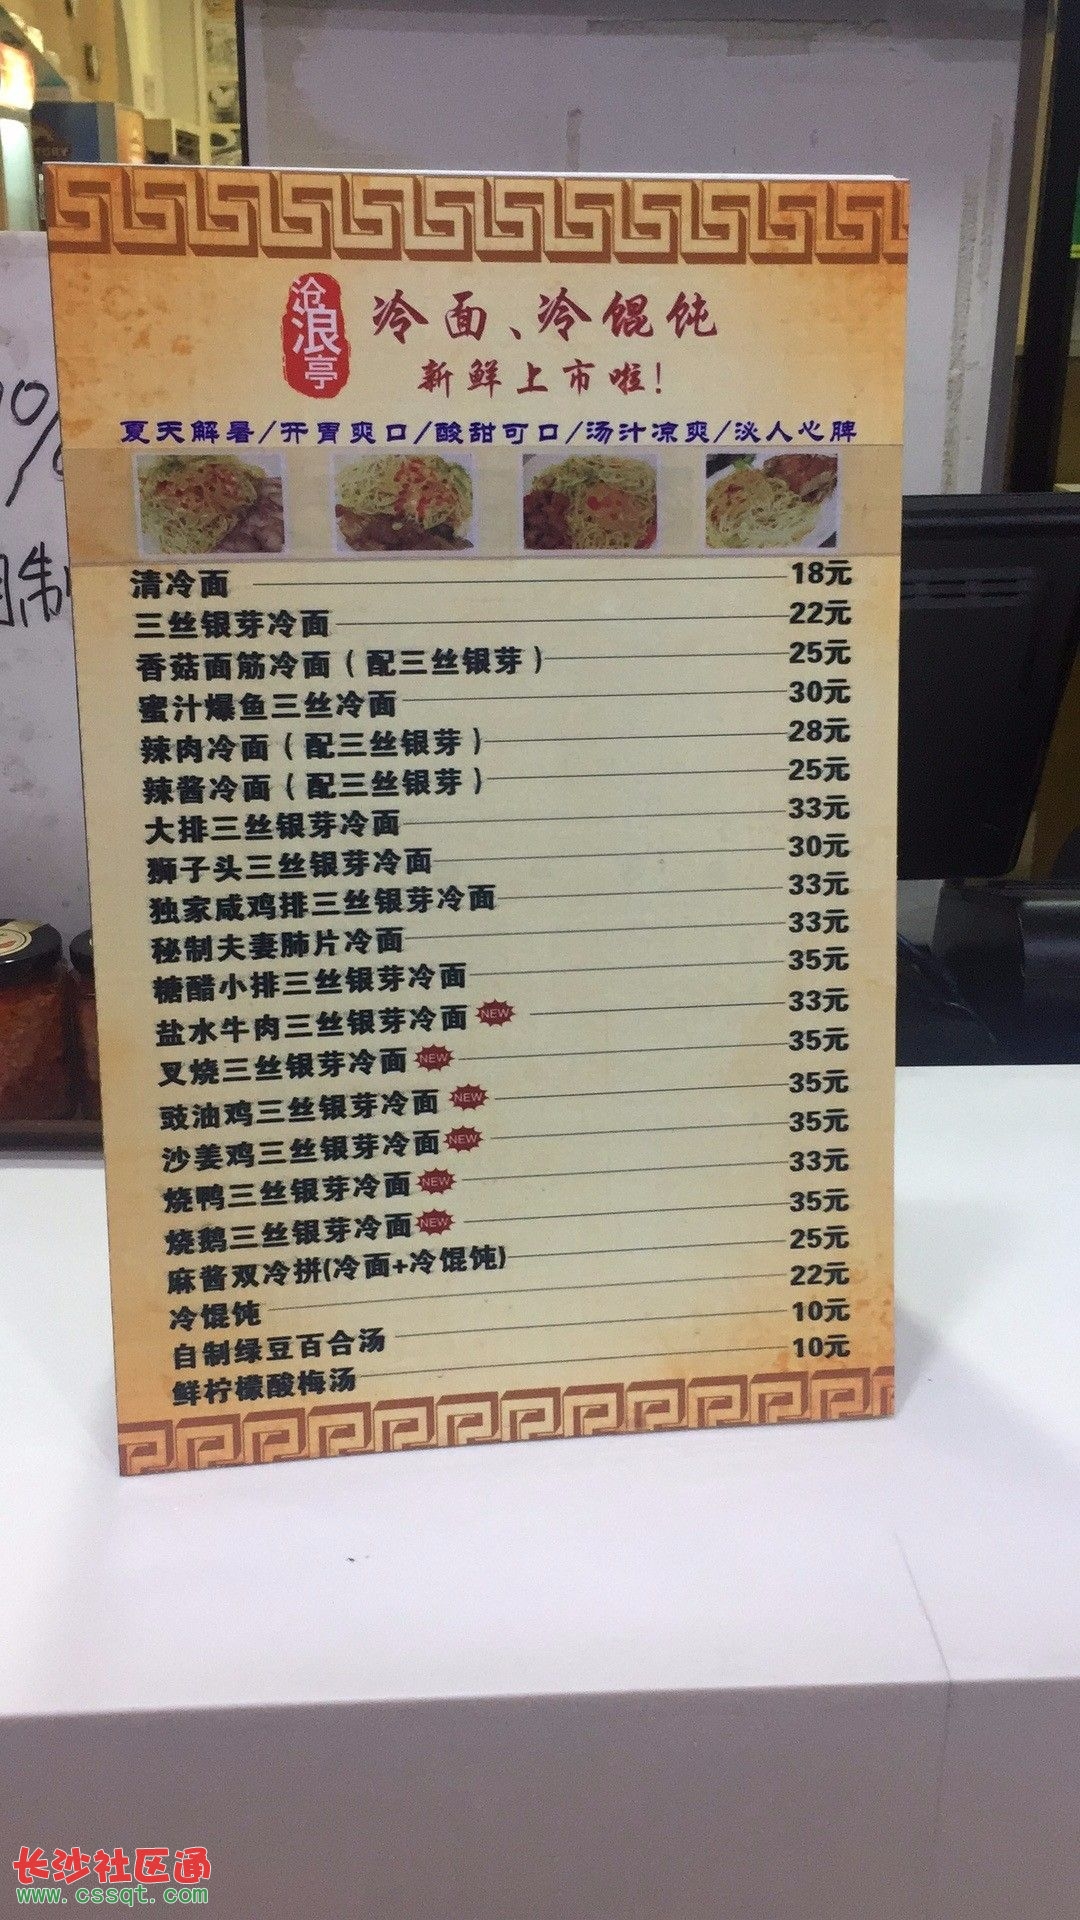 沧浪亭
冷面、冷馄饨
新鲜上市啦！
夏天解暑/开胃爽口/酸甜可口/汤汁凉爽/淡人心脾
清冷面 18元
三丝银芽冷面 22元
香菇面筋冷面（配三丝银芽） 25元
蜜汁爆鱼三丝冷面 30元
辣肉冷面（配三丝银芽） 28元
辣酱冷面（配三丝银芽） 25元
大排三丝银芽冷面 33元
狮子头三丝银芽冷面 30元
独家咸鸡排三丝银芽冷面 33元
秘制夫妻肺片冷面 33元
糖醋小排三丝银芽冷面 35元
盐水牛肉三丝银芽冷面 NEW 33元
叉烧三丝银芽冷面 NEW 35元
豉油鸡三丝银芽冷面 NEW 35元
沙姜鸡三丝银芽冷面 NEW 35元
烧鸭三丝银芽冷面 NEW 33元
烧鹅三丝银芽冷面 NEW 35元
麻酱双冷拼(冷面+冷馄饨) 25元
冷馄饨 22元
自制绿豆百合汤 10元
鲜柠檬酸梅汤 10元
长沙社区通
www.cssqt.com